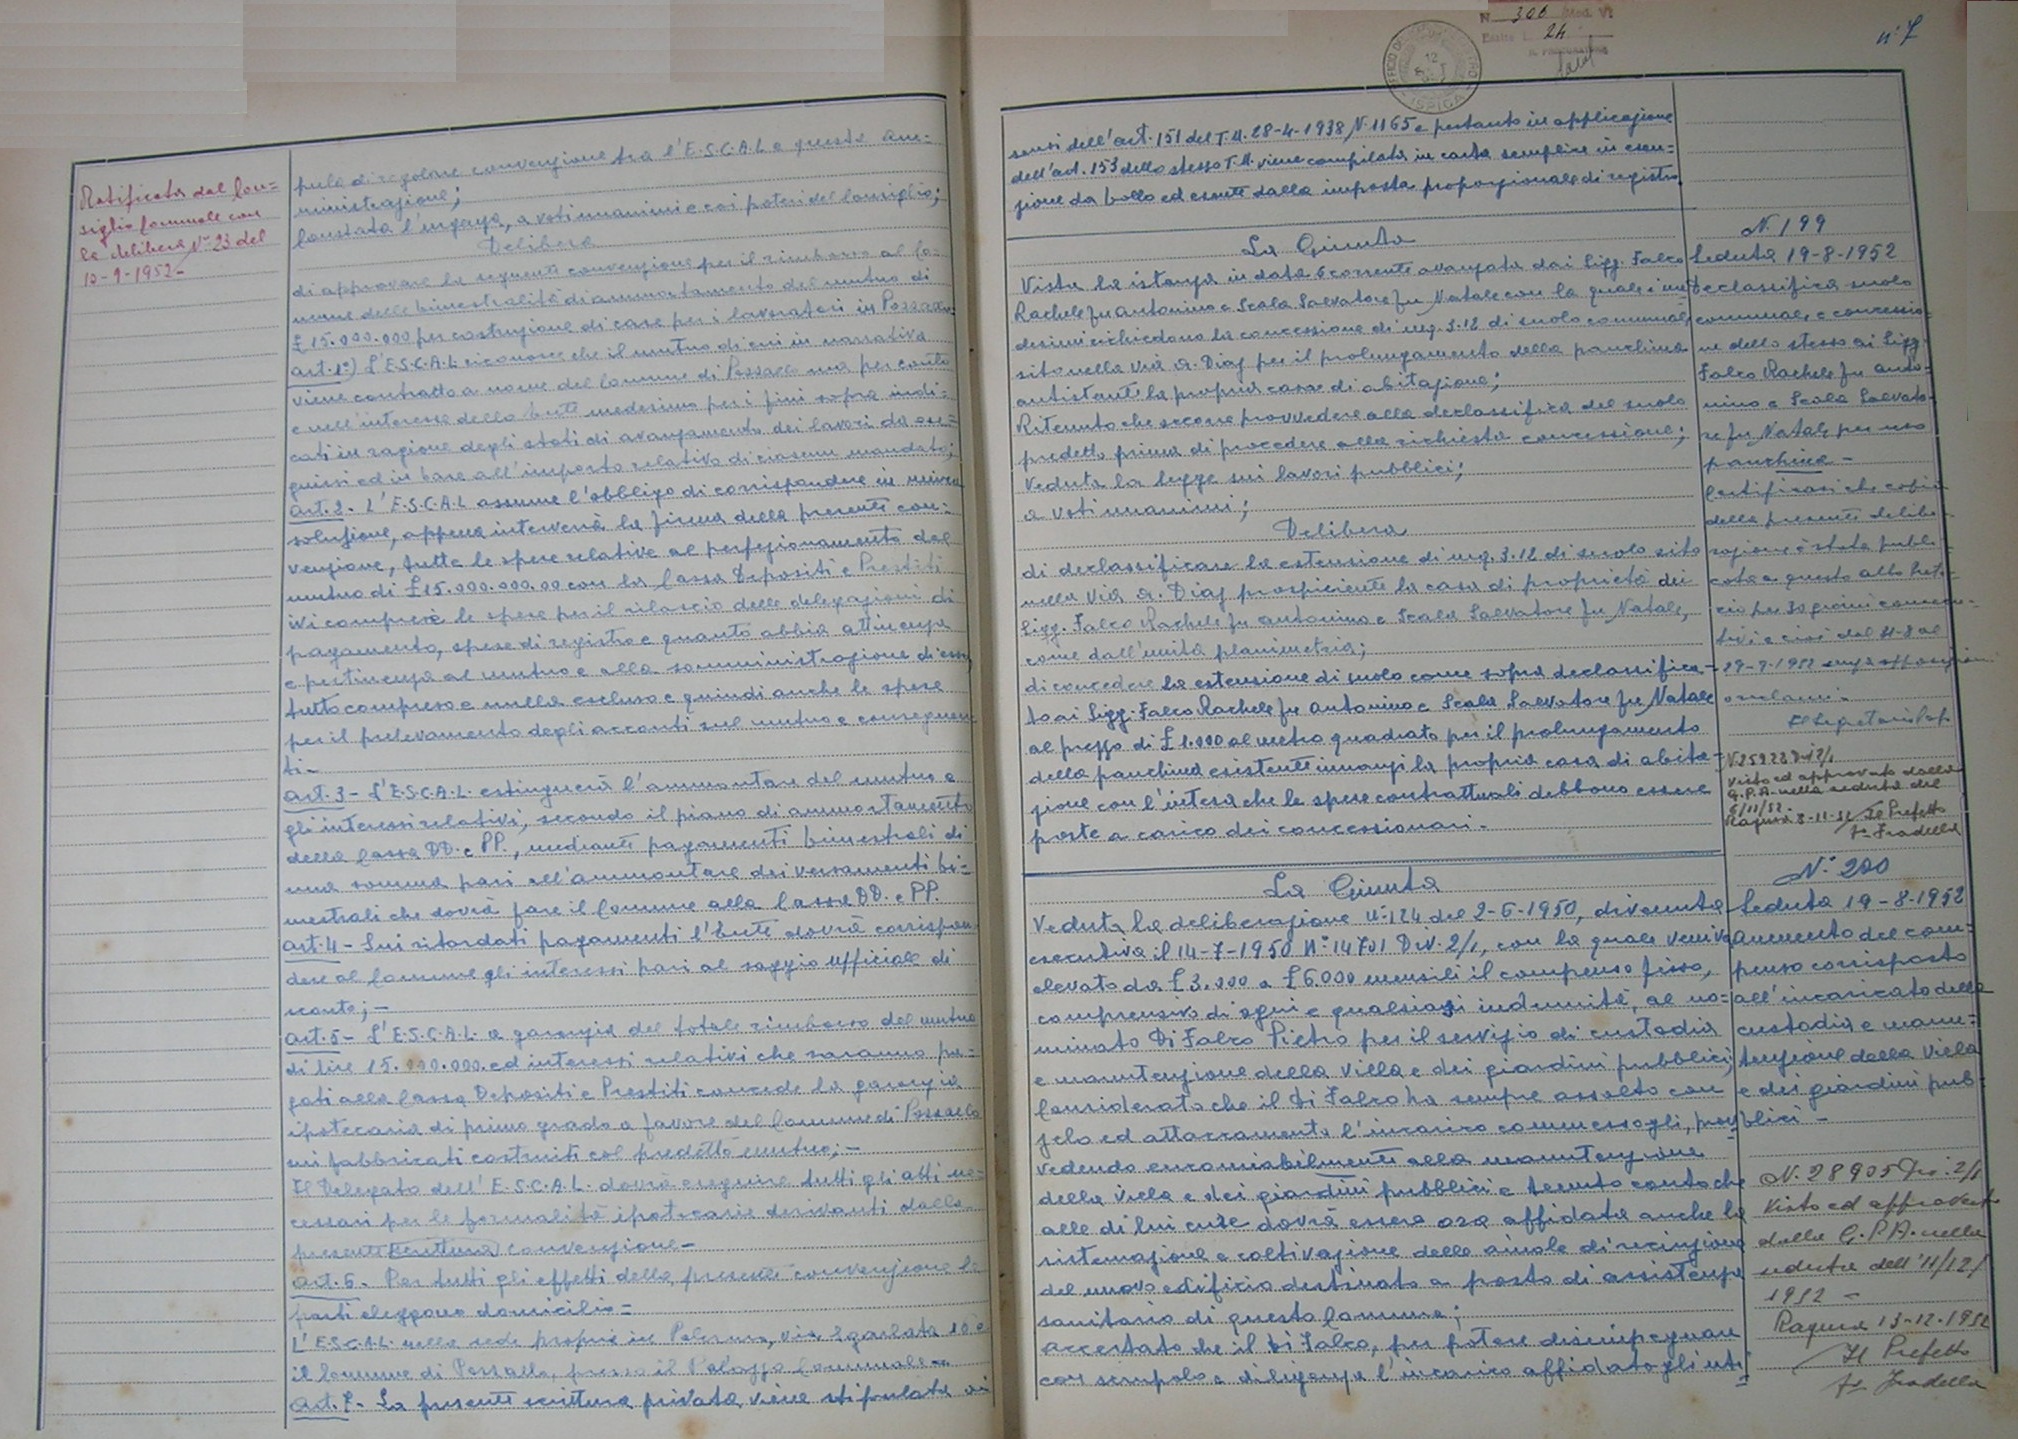 Ratificata dal Con=
siglio Comunale con
la delibera N° 23 del
10-9-1952-
pula di regolare convenzione tra l'E.S.C.A.L e questa Am=
ministrazione;
Constata l'urgenza, a voti unanimi e coi poteri del Consiglio;
Delibera
di approvare la seguente convenzione per il rimborso al Co=
mune delle bimestralità di ammortamento del mutuo di
£ 15.000.000 per costruzione di case per i lavoratori in Pozzallo:
Art. 1°) L'E.S.C.A.L riconosce che il mutuo di cui in narrativa
viene contratto a nome del Comune di Pozzallo ma per conto
e nell'interesse dello Ente medesimo per i fini sopra indi=
cati in ragione degli stati di avanzamento dei lavori da ese=
guirsi ed in base all'importo relativo di ciascun mandato;
Art. 2- L'E.S.C.A.L assume l'obbligo di corrispondere in unica
soluzione, appena interverrà la firma della presente con=
venzione, tutte le spese relative al perfezionamento del
mutuo di £ 15.000.000.00 con la Cassa Depositi e Prestiti
ivi comprese le spese per il rilascio delle delegazioni di
pagamento, spese di registro e quanto abbia attinenza
e pertinenza al mutuo e alla somministrazione di esso,
tutto compreso e nulla escluso e quindi anche le spese
per il prelevamento degli acconti sul mutuo e conseguen
ti-
Art. 3- L'E.S.C.A.L. estinguerà l'ammontare del mutuo e
gli interessi relativi, secondo il piano di ammortamento
della Cassa DD. e PP., mediante pagamenti bimestrali di
una somma pari all'ammontare dei versamenti bi=
mestrali che dovrà fare il Comune alla Cassa DD. e PP.
Art. 4- Sui ritardati pagamenti l'Ente dovrà corrispon=
dere al Comune gli interessi pari al saggio ufficiale di
sconto;-
Art. 5- L'E.S.C.A.L. a garanzia del totale rimborso del mutuo
di lire 15.000.000. ed interessi relativi che saranno pa=
gati alla Cassa Depositi e Prestiti concede la garanzia
ipotecaria di primo grado a favore del Comune di Pozzallo
sui fabbricati costruiti col predetto mutuo;-
Il Delegato dell'E.S.C.A.L. dovrà eseguire tutti gli atti ne=
cessari per le formalità ipotecarie derivanti dalla
presente scrittura convenzione-
Art. 6- Per tutti gli effetti della presente convenzione le
parti eleggono domicilio=
L'E.S.C.A.L. nella sede propria in Palermo, via 10 e
il Comune di Pozzallo, presso il Palazzo Comunale-
Art. 7- La presente scrittura privata viene stipulata ai
N. 306 Mod. VI
Esatte L. 24
IL PROCURATORE
UFFICIO DEL REGISTRO
12
ISPICA
n° 7
sensi dell'art. 151 del T.U. 28-4-1938 N. 1165 e pertanto in applicazione
dell'art. 153 dello stesso T.U. viene compilata in carta semplice in esen=
zione da bollo ed esente dalla imposta proporzionale di registro.
La Giunta
Vista la istanza in data 6 corrente avanzata dai Sigg. Falco
Rachele fu Antonino e Scala Salvatore fu Natale con la quale i me=
desimi richiedono la concessione di mq. 3.12 di suolo comunale,
sito nella Via A. Diaz per il prolungamento della panchina
antistante la propria casa di abitazione;
Ritenuto che occorre provvedere alla declassifica del suolo
predetto prima di procedere alla richiesta concessione;
Veduta la legge sui lavori pubblici;
a voti unanimi;
Delibera
di declassificare la estensione di mq. 3.12 di suolo sito
nella Via A. Diaz prospiciente la casa di proprietà dei
Sigg. Falco Rachele fu Antonino e Scala Salvatore fu Natale,
come dall'unita planimetria;
di concedere la estensione di suolo come sopra declassifica=
to ai Sigg. Falco Rachele fu Antonino e Scala Salvatore fu Natale
al prezzo di £ 1.000 al metro quadrato per il prolungamento
della panchina esistente innanzi la propria casa di abita=
zione con l'intesa che le spese contrattuali debbono essere
poste a carico dei concessionari.-
N. 199
Seduta 19-8-1952
Declassifica suolo
comunale e concessio=
ne dello stesso ai Sigg.
Falco Rachele fu Anto=
nino e Scala Salvato=
re fu Natale per uso
panchina-
Certificasi che copia
della presente delibe=
razione è stata pubbli=
cata a questo albo Preto=
rio per 30 giorni consecu=
tivi e cioè dal 31-8 al
29-9-1952 senza opposizioni
o reclami.-
Il Segretario Cap.
N. 25923 Div. 2/1
Visto ed approvato dalla
G.P.A. nella seduta del
6/11/52.
Ragusa 8-11-52 Il Prefetto
F° Fradella
La Giunta
Veduta la deliberazione N° 124 del 2-6-1950, divenuta
esecutiva il 14-7-1950 N° 14701 Div. 2/1, con la quale veniva
elevato da £ 3.000 a £ 6.000 mensili il compenso fisso,
comprensivo di ogni e qualsiasi indennità, al no=
minato Di Falco Pietro per il servizio di custodia
e manutenzione della villa e dei giardini pubblici;
Considerato che il Di Falco ha sempre assolto con
zelo ed attaccamento l'incarico commessogli, prov
vedendo encomiabilmente alla manutenzione
della villa e dei giardini pubblici e tenuto conto che
alle di lui cure dovrà essere ora affidata anche la
sistemazione e coltivazione delle aiuole di recinzione
del nuovo edificio destinato a posto di assistenza
sanitaria di questo Comune;
Accertato che il Di Falco, per potere disimpegnare
con scrupolo e diligenza l'incarico affidatogli uti
N° 200
Seduta 19-8-1952
Aumento del com=
penso corrisposto
all'incaricato della
custodia e manu=
tenzione della Villa
e dei giardini pub=
blici-
N. 28905 Div. 2/1
Visto ed approvato
dalla G.P.A. nella
seduta dell'11/12/
1952-
Ragusa 13-12-1952
Il Prefetto
F° Fradella